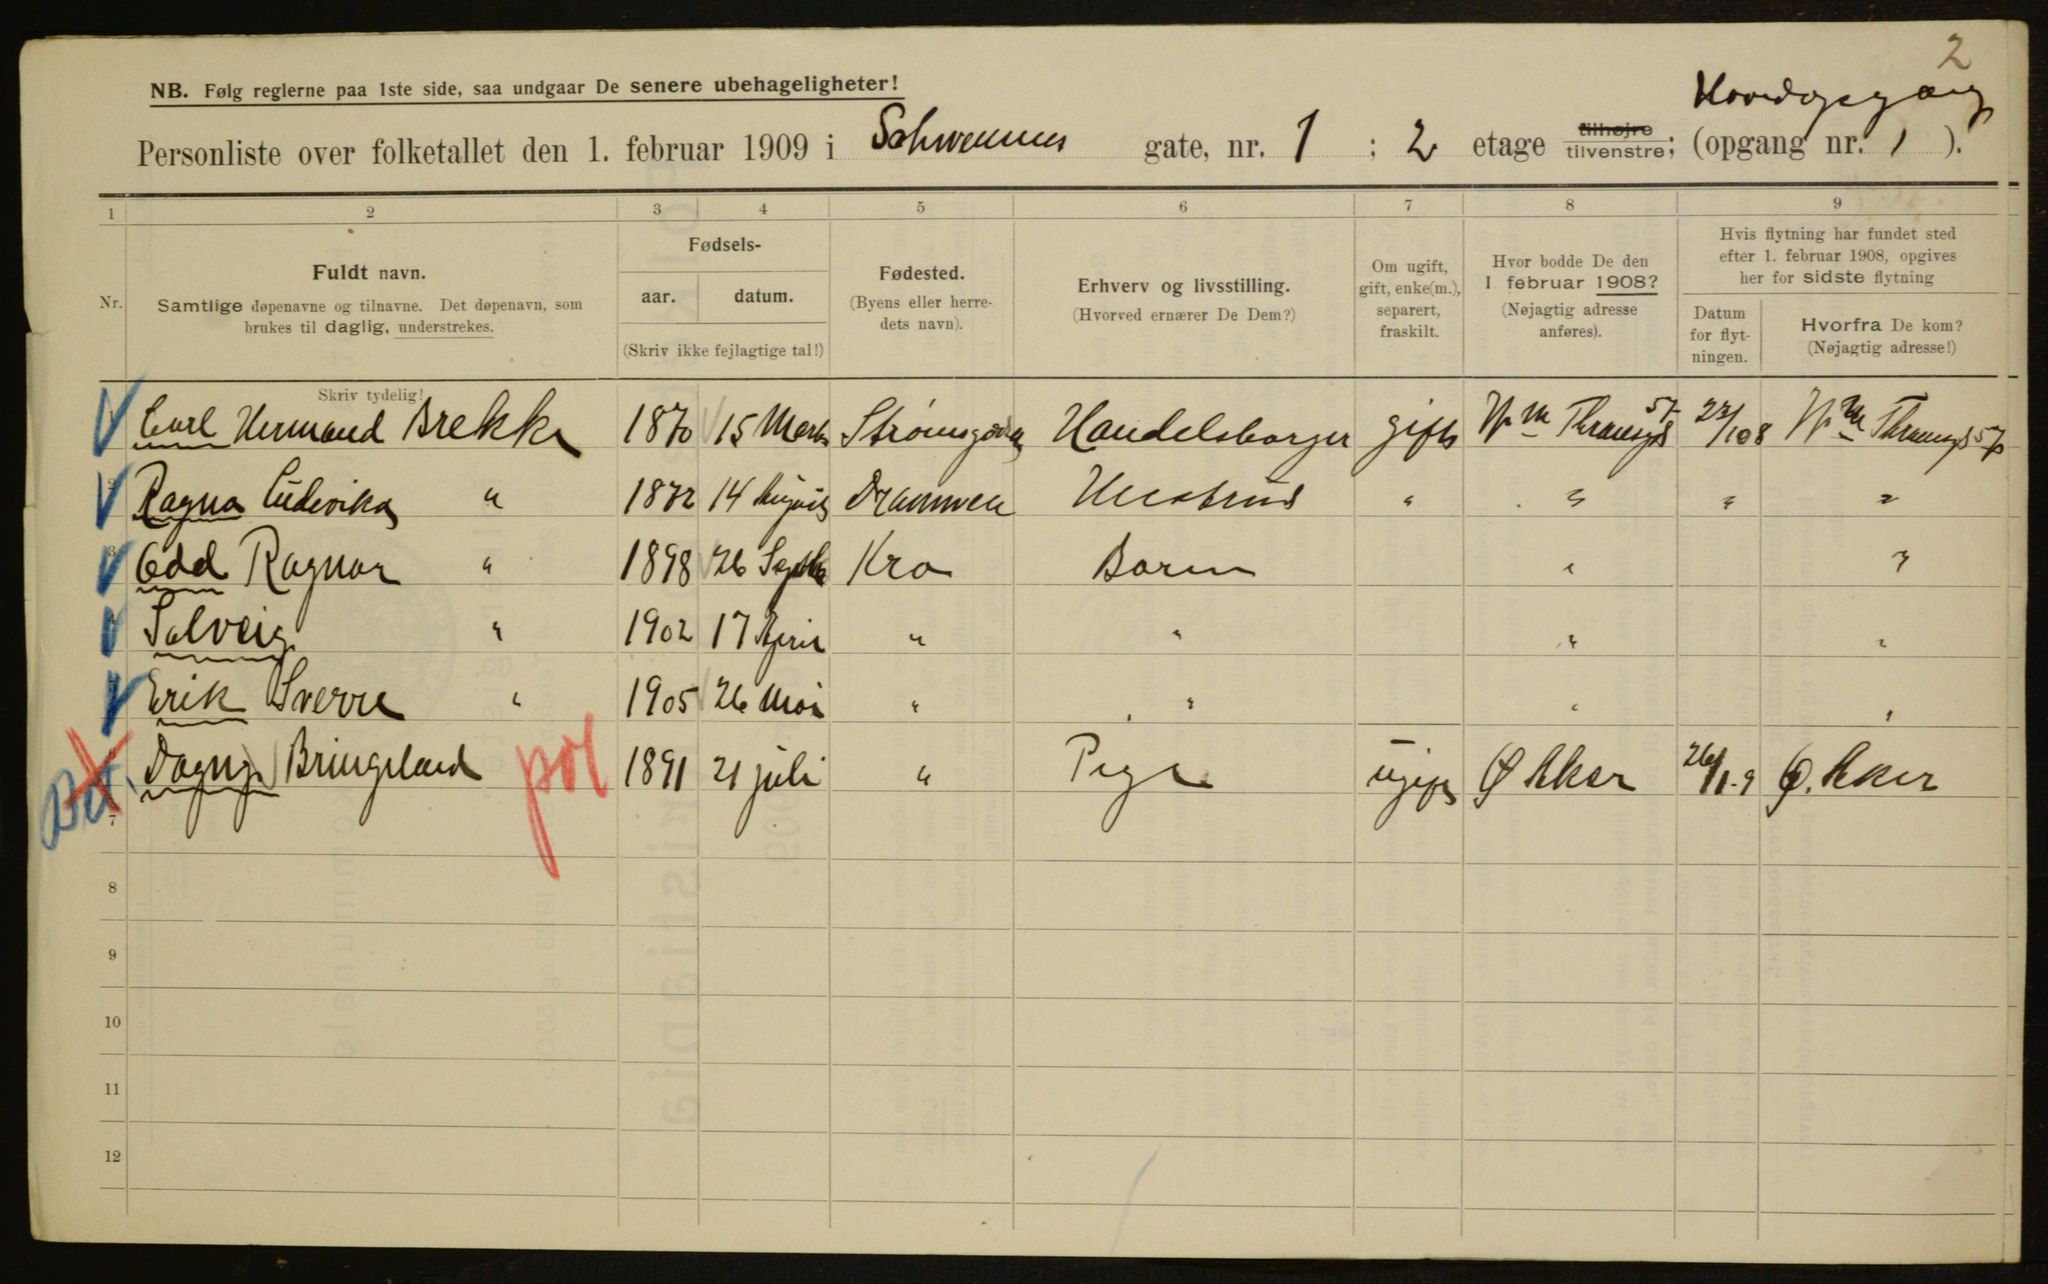 2
NB. Følg reglerne paa 1ste side, saa undgaar De senere ubehageligheter!
Hovedopgang
Personliste over folketallet den 1. februar 1909 i Schwenns gate, nr. 1 ; 2 etage tilhøjre tilvenstre; (opgang nr. 1 ).
1 2 3 4 5 6 7 8 9
Nr.
Fuldt navn.
Samtlige døpenavne og tilnavne. Det døpenavn, som
brukes til daglig, understrekes.
Fødsels-
aar. datum.
(Skriv ikke fejlagtige tal!)
Fødested.
(Byens eller herre-
dets navn).
Erhverv og livsstilling.
(Hvorved ernærer De Dem?)
Om ugift,
gift, enke(m.),
separert,
fraskilt.
Hvor bodde De den
1 februar 1908?
(Nøjagtig adresse
anføres).
Hvis flytning har fundet sted
efter 1. februar 1908, opgives
her for sidste flytning
Datum
for flyt-
ningen.
Hvorfra De kom?
(Nøjagtig adresse!)
Skriv tydelig!
1 Carl Hermand Brekke 1870 15 Marts Strømsgodset Handelsborger gift Wm Thranesgd 57 Wm Thranesgd 57
2 Ragna Ludovika " 1872 14 August Drammen Hustru " " " "
3 Odd Ragnar " 1898 26 Septbr Kra Barn " "
4 Solveig " 1902 17 April " " " "
5 Erik Sverre " 1905 26 Mai " " " "
6 Dagny Bringeland pol 1891 21 juli " Pige ugift Ø Aker 26/1-9 Ø. Aker
7
8
9
10
11
12